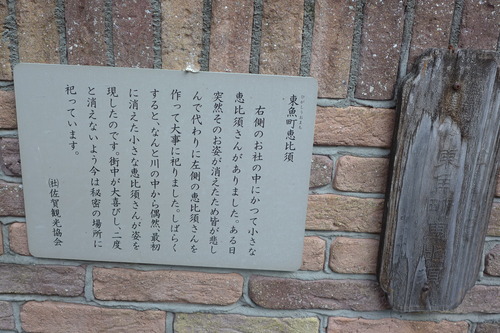 東魚町恵比須
ひがしうおまち
右側のお社の中にかつて小さな
恵比須さんがありました。ある日
突然そのお姿が消えたため皆が悲し
んで代わりに左側の恵比須さんを
作って大事に祀りました。しばらく
すると、なんと川の中から偶然、最初
に消えた小さな恵比須さんが姿を
現したのです。街中が大喜びし、二度
と消えないよう今は秘密の場所に
祀っています。
㈳佐賀観光協会